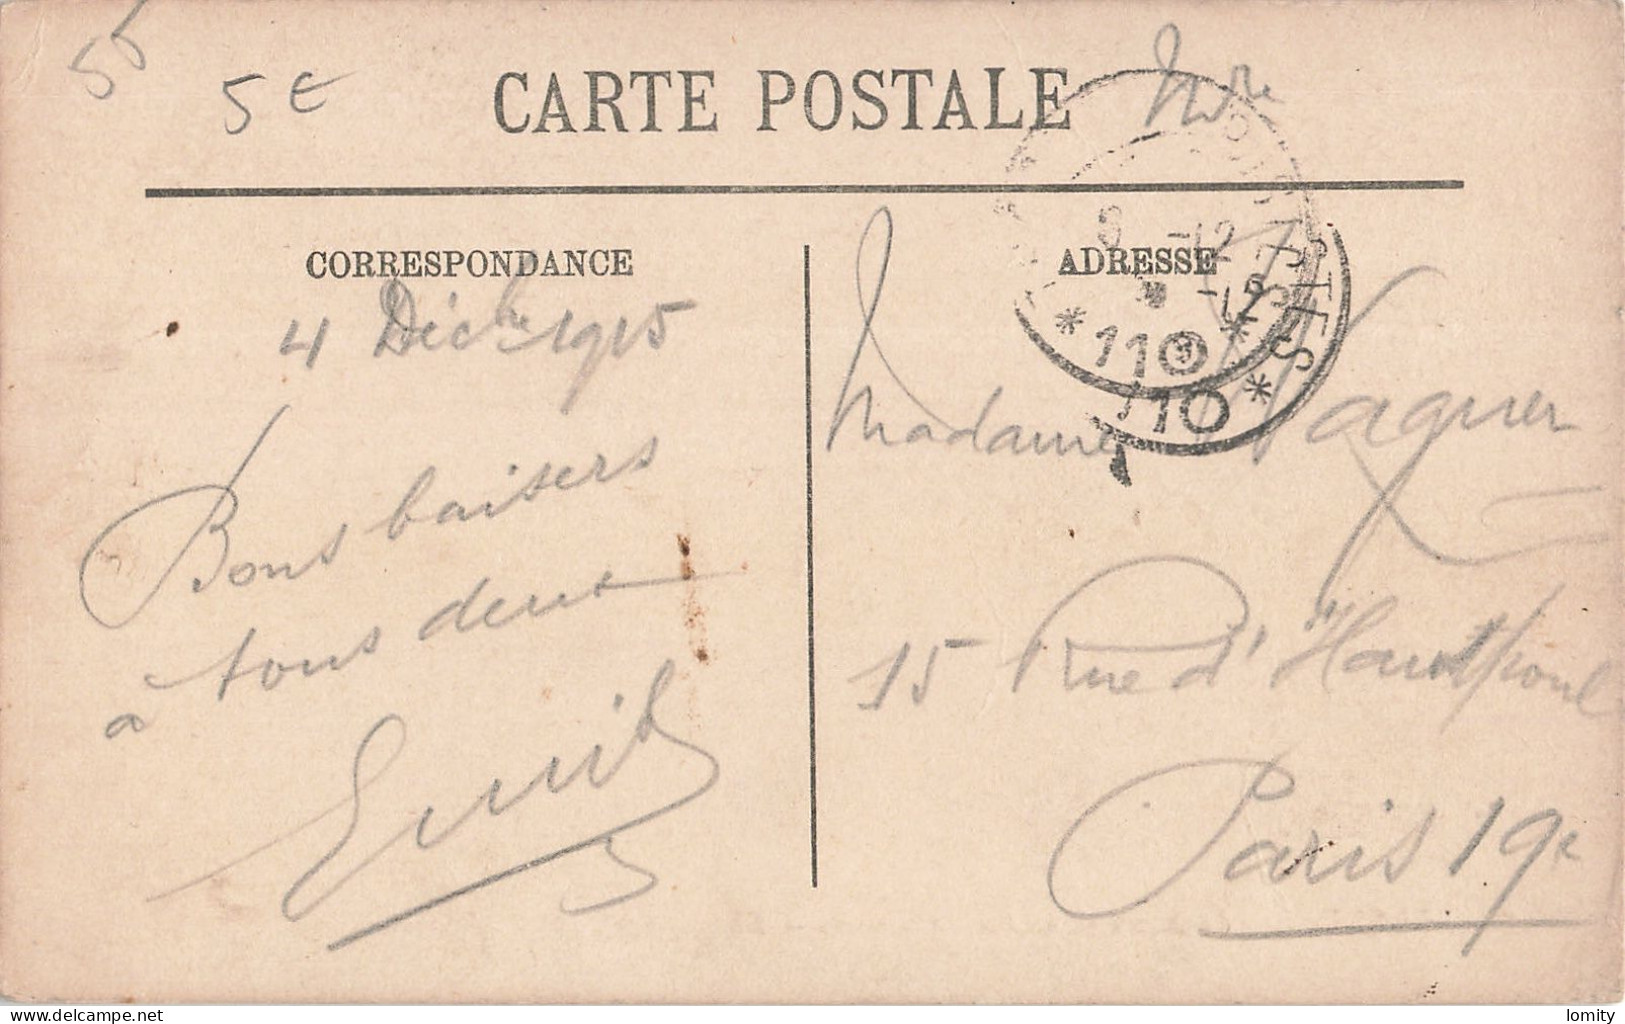 55
5 €
CARTE POSTALE
CORRESPONDANCE
ADRESSE
4 Déc 1915
Bons baisers
à tous deux
Emile
Madame Wagner
15 Rue d'Hautpoul
Paris 19e
POSTES
-12
-12
* 110 *
110 *
www.delcampe.net
lomity